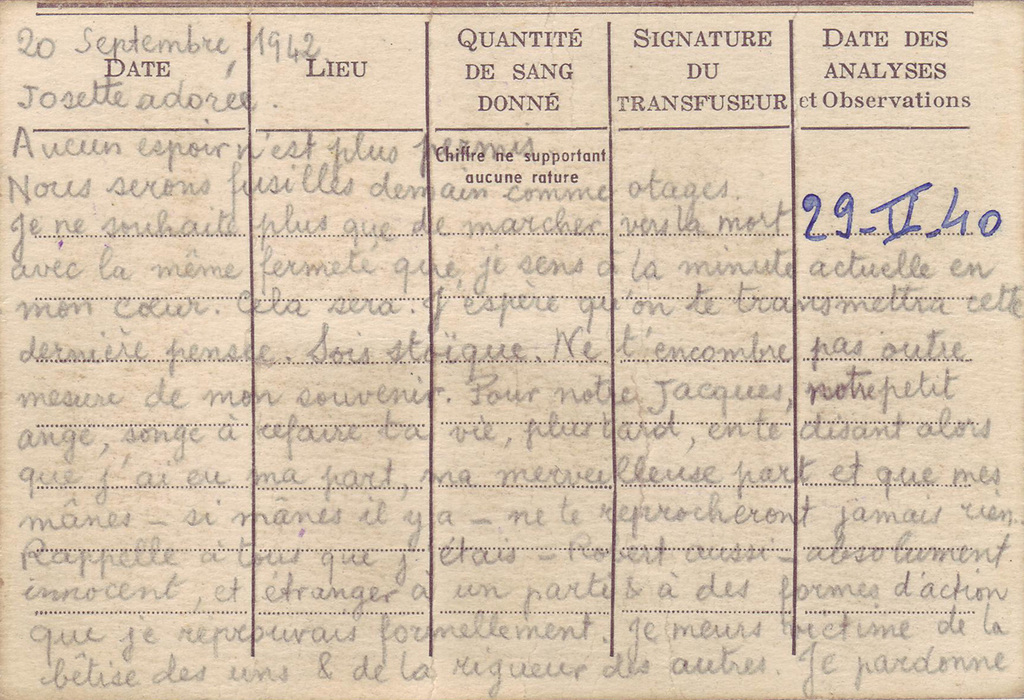 20 Septembre, 1942
DATE
LIEU
QUANTITÉ
DE SANG
DONNÉ
SIGNATURE
DU
TRANSFUSEUR
DATE DES
ANALYSES
et Observations
Josette adorée.
Aucun espoir n'est plus permis.
Chiffre ne supportant
aucune rature
Nous serons fusillés demain comme otages.
29-II-40
Je ne souhaite plus que de marcher vers la mort
avec la même fermeté que je sens à la minute actuelle en
mon cœur. Cela sera. J'espère qu'on te transmettra cette
dernière pensée. Sois stoïque. Ne t'encombre pas outre
mesure de mon souvenir. Pour notre Jacques, notre petit
ange, songe à refaire ta vie, plus tard, en te disant alors
que j'ai eu ma part, ma merveilleuse part et que mes
mânes - si mânes il y a - ne te reprocheront jamais rien.
Rappelle à tous que j'étais - Robert aussi - absolument
innocent, et étranger à un parti & à des formes d'action
que je réprouvais formellement. Je meurs victime de la
bêtise des uns & de la rigueur des autres. Je pardonne